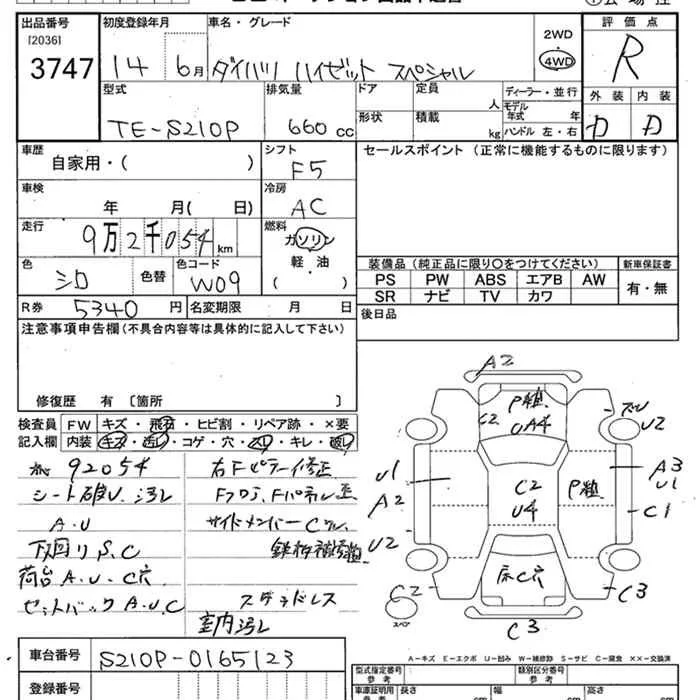 出品番号
[2036]
3747
初度登録年月
14年6月
車名・グレード
ダイハツ ハイゼット スペシャル
2WD
4WD
評価点
R
外装 内装
D D
型式
TE-S210P
排気量
660cc
ドア
形状
定員 人
積載 kg
ディーラー・並行
モデル年式 年
ハンドル 左・右
車歴
自家用・( )
シフト
F5
セールスポイント (正常に機能するものに限ります)
車検
年 月( 日)
冷房
AC
走行
9万2千054km
燃料
ガソリン
軽・油
( )
色
シロ
色替
色コード
W09
装備品 (純正品に限り○をつけてください)
新車保証書
PS PW ABS エアB AW
SR ナビ TV カワ
有・無
R券 5340円
名変期限 月 日
後日品
注意事項申告欄 (不具合内容等は具体的に記入して下さい)
修復歴 有 〔箇所 〕
検査員記入欄
FW キズ・飛石・ヒビ割・リペア跡・×要
内装 キズ・汚レ・コゲ・穴・スレ・キレ・破レ
92054
シート破レ.汚レ
A.U
下回りS.C
荷台A.U.C穴
セットバックA.U.C
右Fピラー修正
サイドメンバーC
スタッドレス
室内汚レ
A2
P粗
C2
UA4
U2
U1
A2
U2
C2
U4
P粗
A3
U1
C1
床C穴
C2
スペア
C3
C3
車台番号
S210P-0165123
登録番号
A-キズ E-エクボ U-凹み W-補修跡 S-サビ C-腐食 ××-交換済
型式指定番号
参考
類別区分番号
参考
車庫証明用
参考
長さ cm
幅 cm
高さ cm